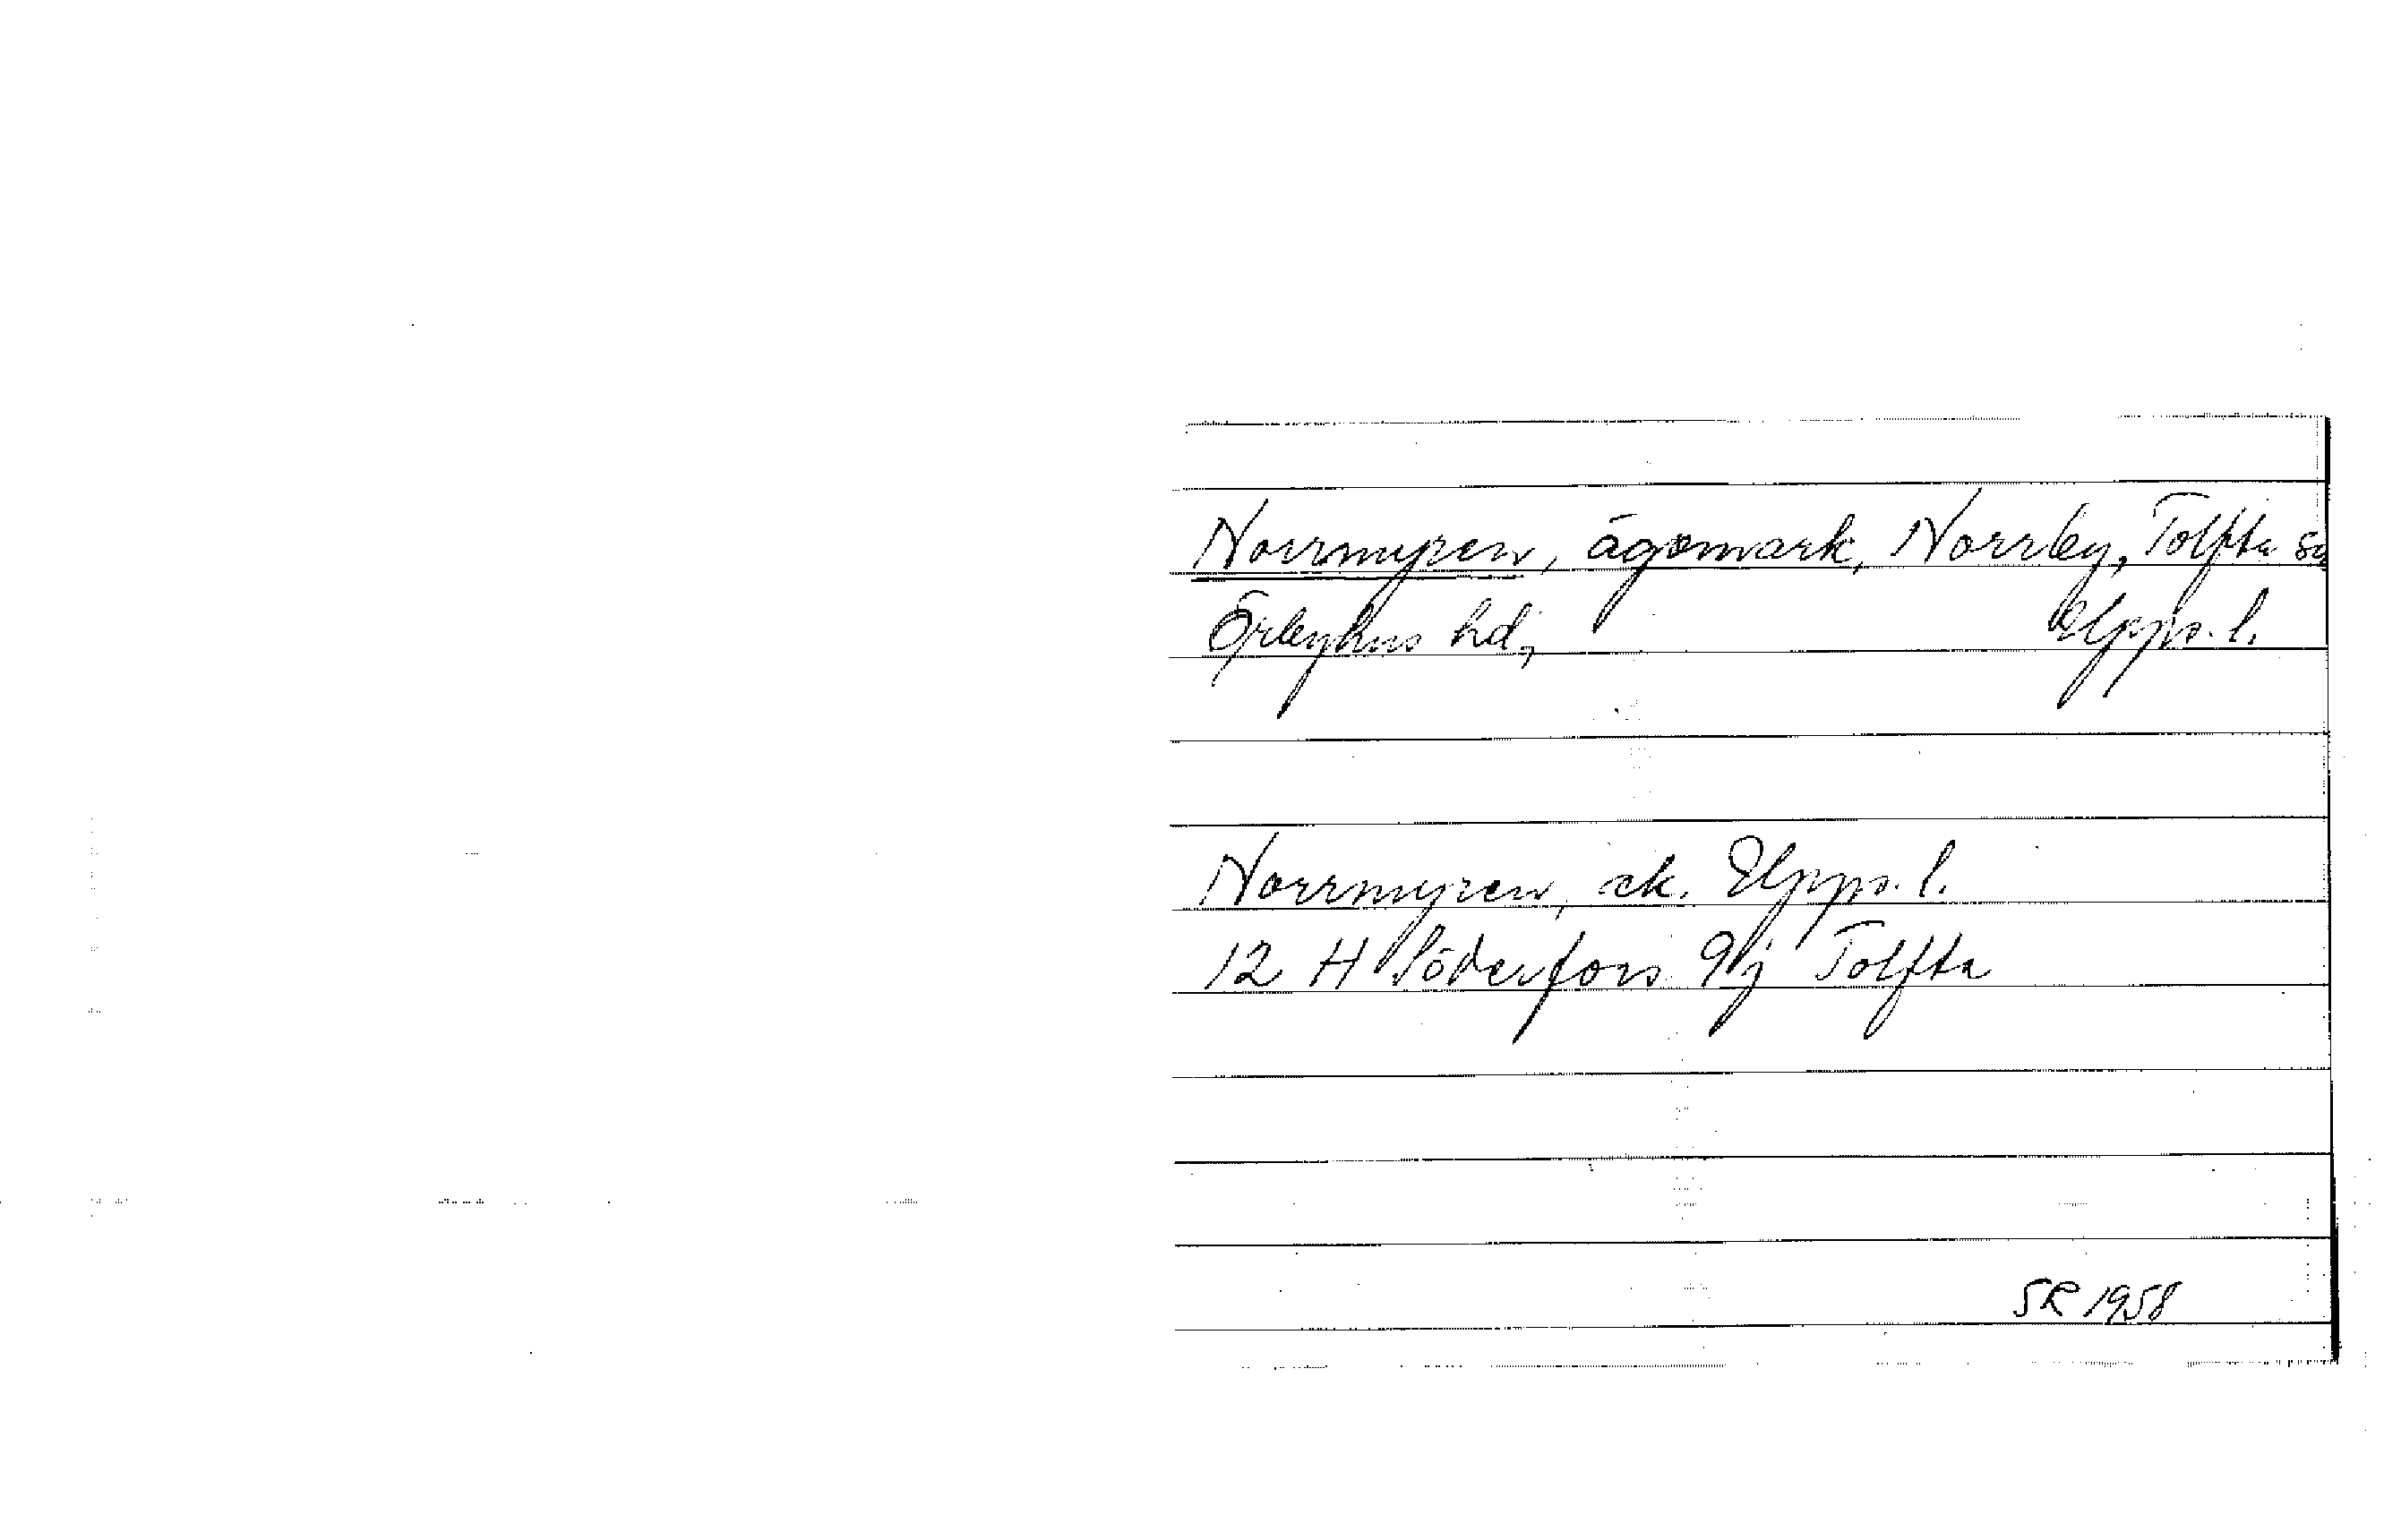 Norrmyren, ägomark, Norrby, Tolfta sn
Örbyhus hd, Upps. l.
Norrmyren, ek. Upps. l.
12 H Söderfors 9j Tolfta
SR 1958